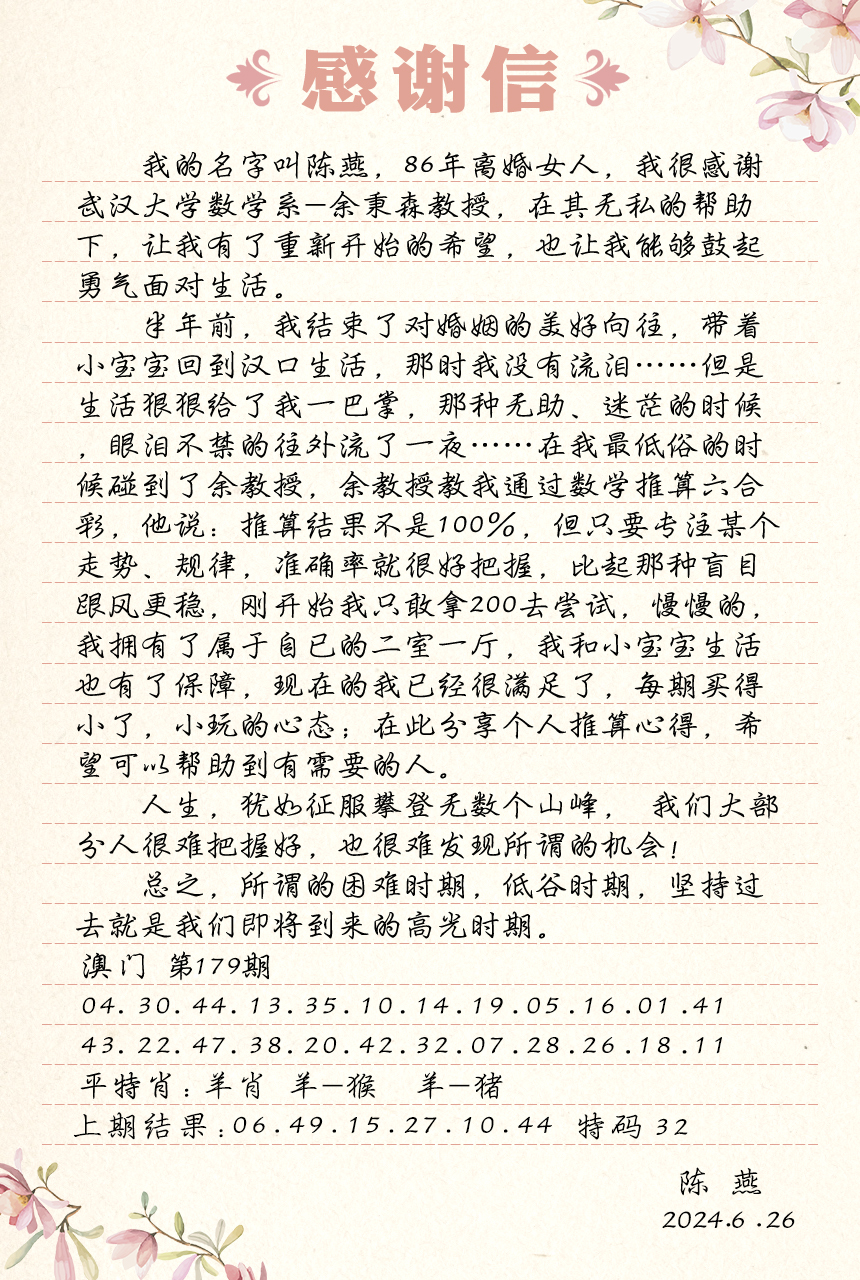 感谢信
我的名字叫陈燕，86年离婚女人，我很感谢
武汉大学数学系—余秉森教授，在其无私的帮助
下，让我有了重新开始的希望，也让我能够鼓起
勇气面对生活。
半年前，我结束了对婚姻的美好向往，带着
小宝宝回到汉口生活，那时我没有流泪……但是
生活狠狠给了我一巴掌，那种无助、迷茫的时候
，眼泪不禁的往外流了一夜……在我最低俗的时
候碰到了余教授，余教授教我通过数学推算六合
彩，他说：推算结果不是100%，但只要专注某个
走势、规律，准确率就很好把握，比起那种盲目
跟风更稳，刚开始我只敢拿200去尝试，慢慢的，
我拥有了属于自已的二室一厅，我和小宝宝生活
也有了保障，现在的我已经很满足了，每期买得
小了，小玩的心态；在此分享个人推算心得，希
望可以帮助到有需要的人。
人生，犹如征服攀登无数个山峰， 我们大部
分人很难把握好，也很难发现所谓的机会！
总之，所谓的困难时期，低谷时期，坚持过
去就是我们即将到来的高光时期。
澳门 第179期
04.30.44.13.35.10.14.19.05.16.01.41
43.22.47.38.20.42.32.07.28.26.18.11
平特肖：羊肖 羊—猴 羊—猪
上期结果：06.49.15.27.10.44 特码 32
陈 燕
2024.6.26